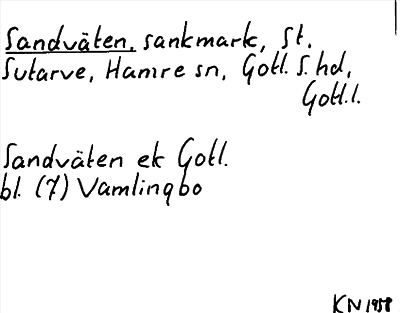 Sandväten, sankmark, St.
Sutarve, Hamre sn, Gotl. S. hd,
Gotl. l.
Sandväten ek Gotl.
bl. (7) Vamlingbo
KN 1958